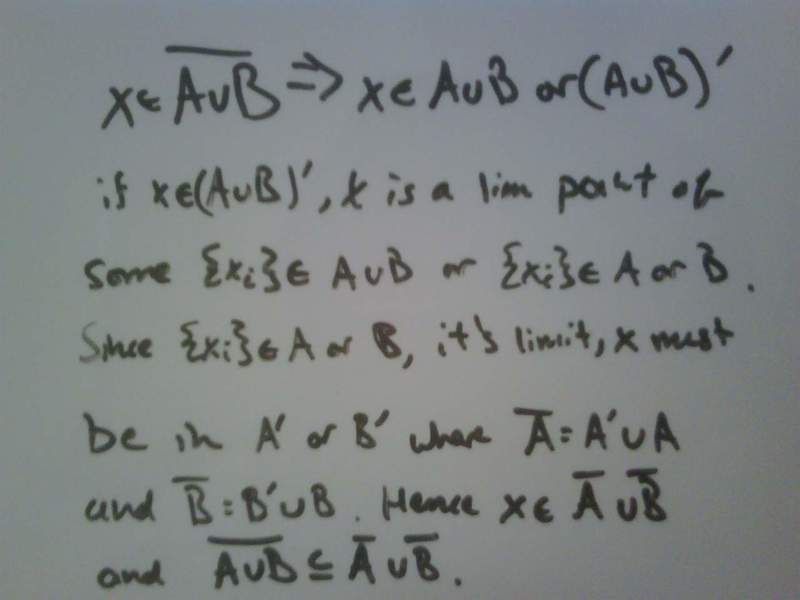 x ∈ A̅∪̅B̅ ⇒ x ∈ A∪B or (A∪B)′
if x∈(A∪B)′, x is a lim point of
some {xᵢ}∈ A∪B or {xᵢ}∈ A or B.
Since {xᵢ}∈A or B, it's limit, x must
be in A′ or B′ where A̅ = A′∪A
and B̅ = B′∪B. Hence x∈ A̅ ∪ B̅
and A̅∪̅B̅ ⊆ A̅ ∪ B̅.